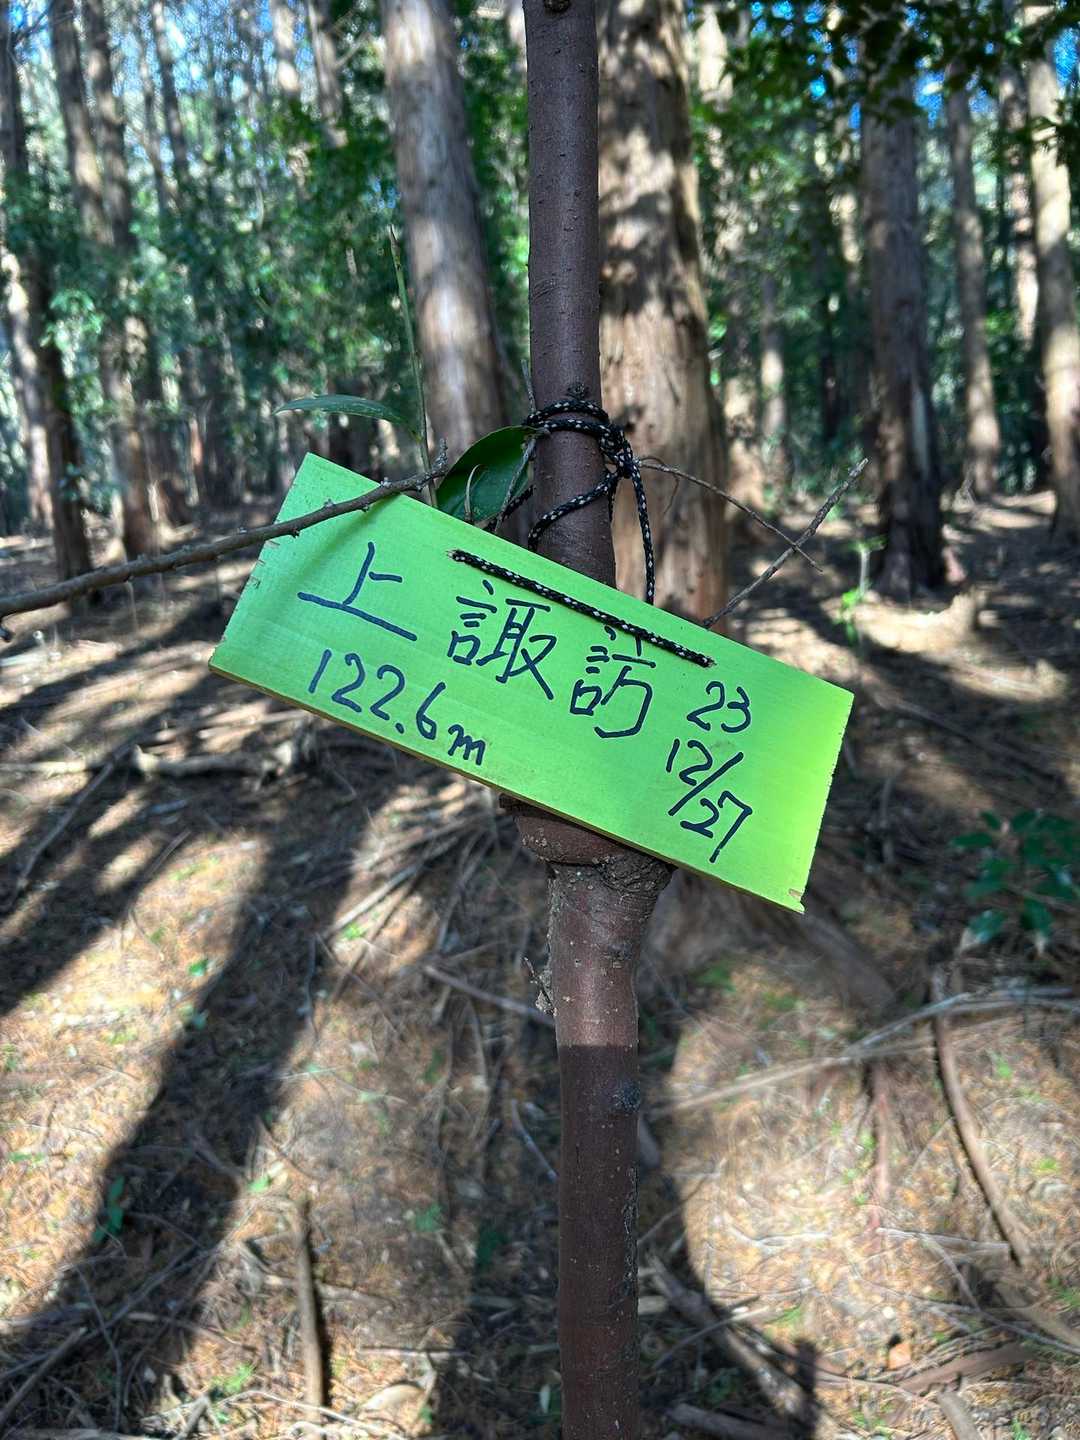 上諏訪
122.6m
23
12/27